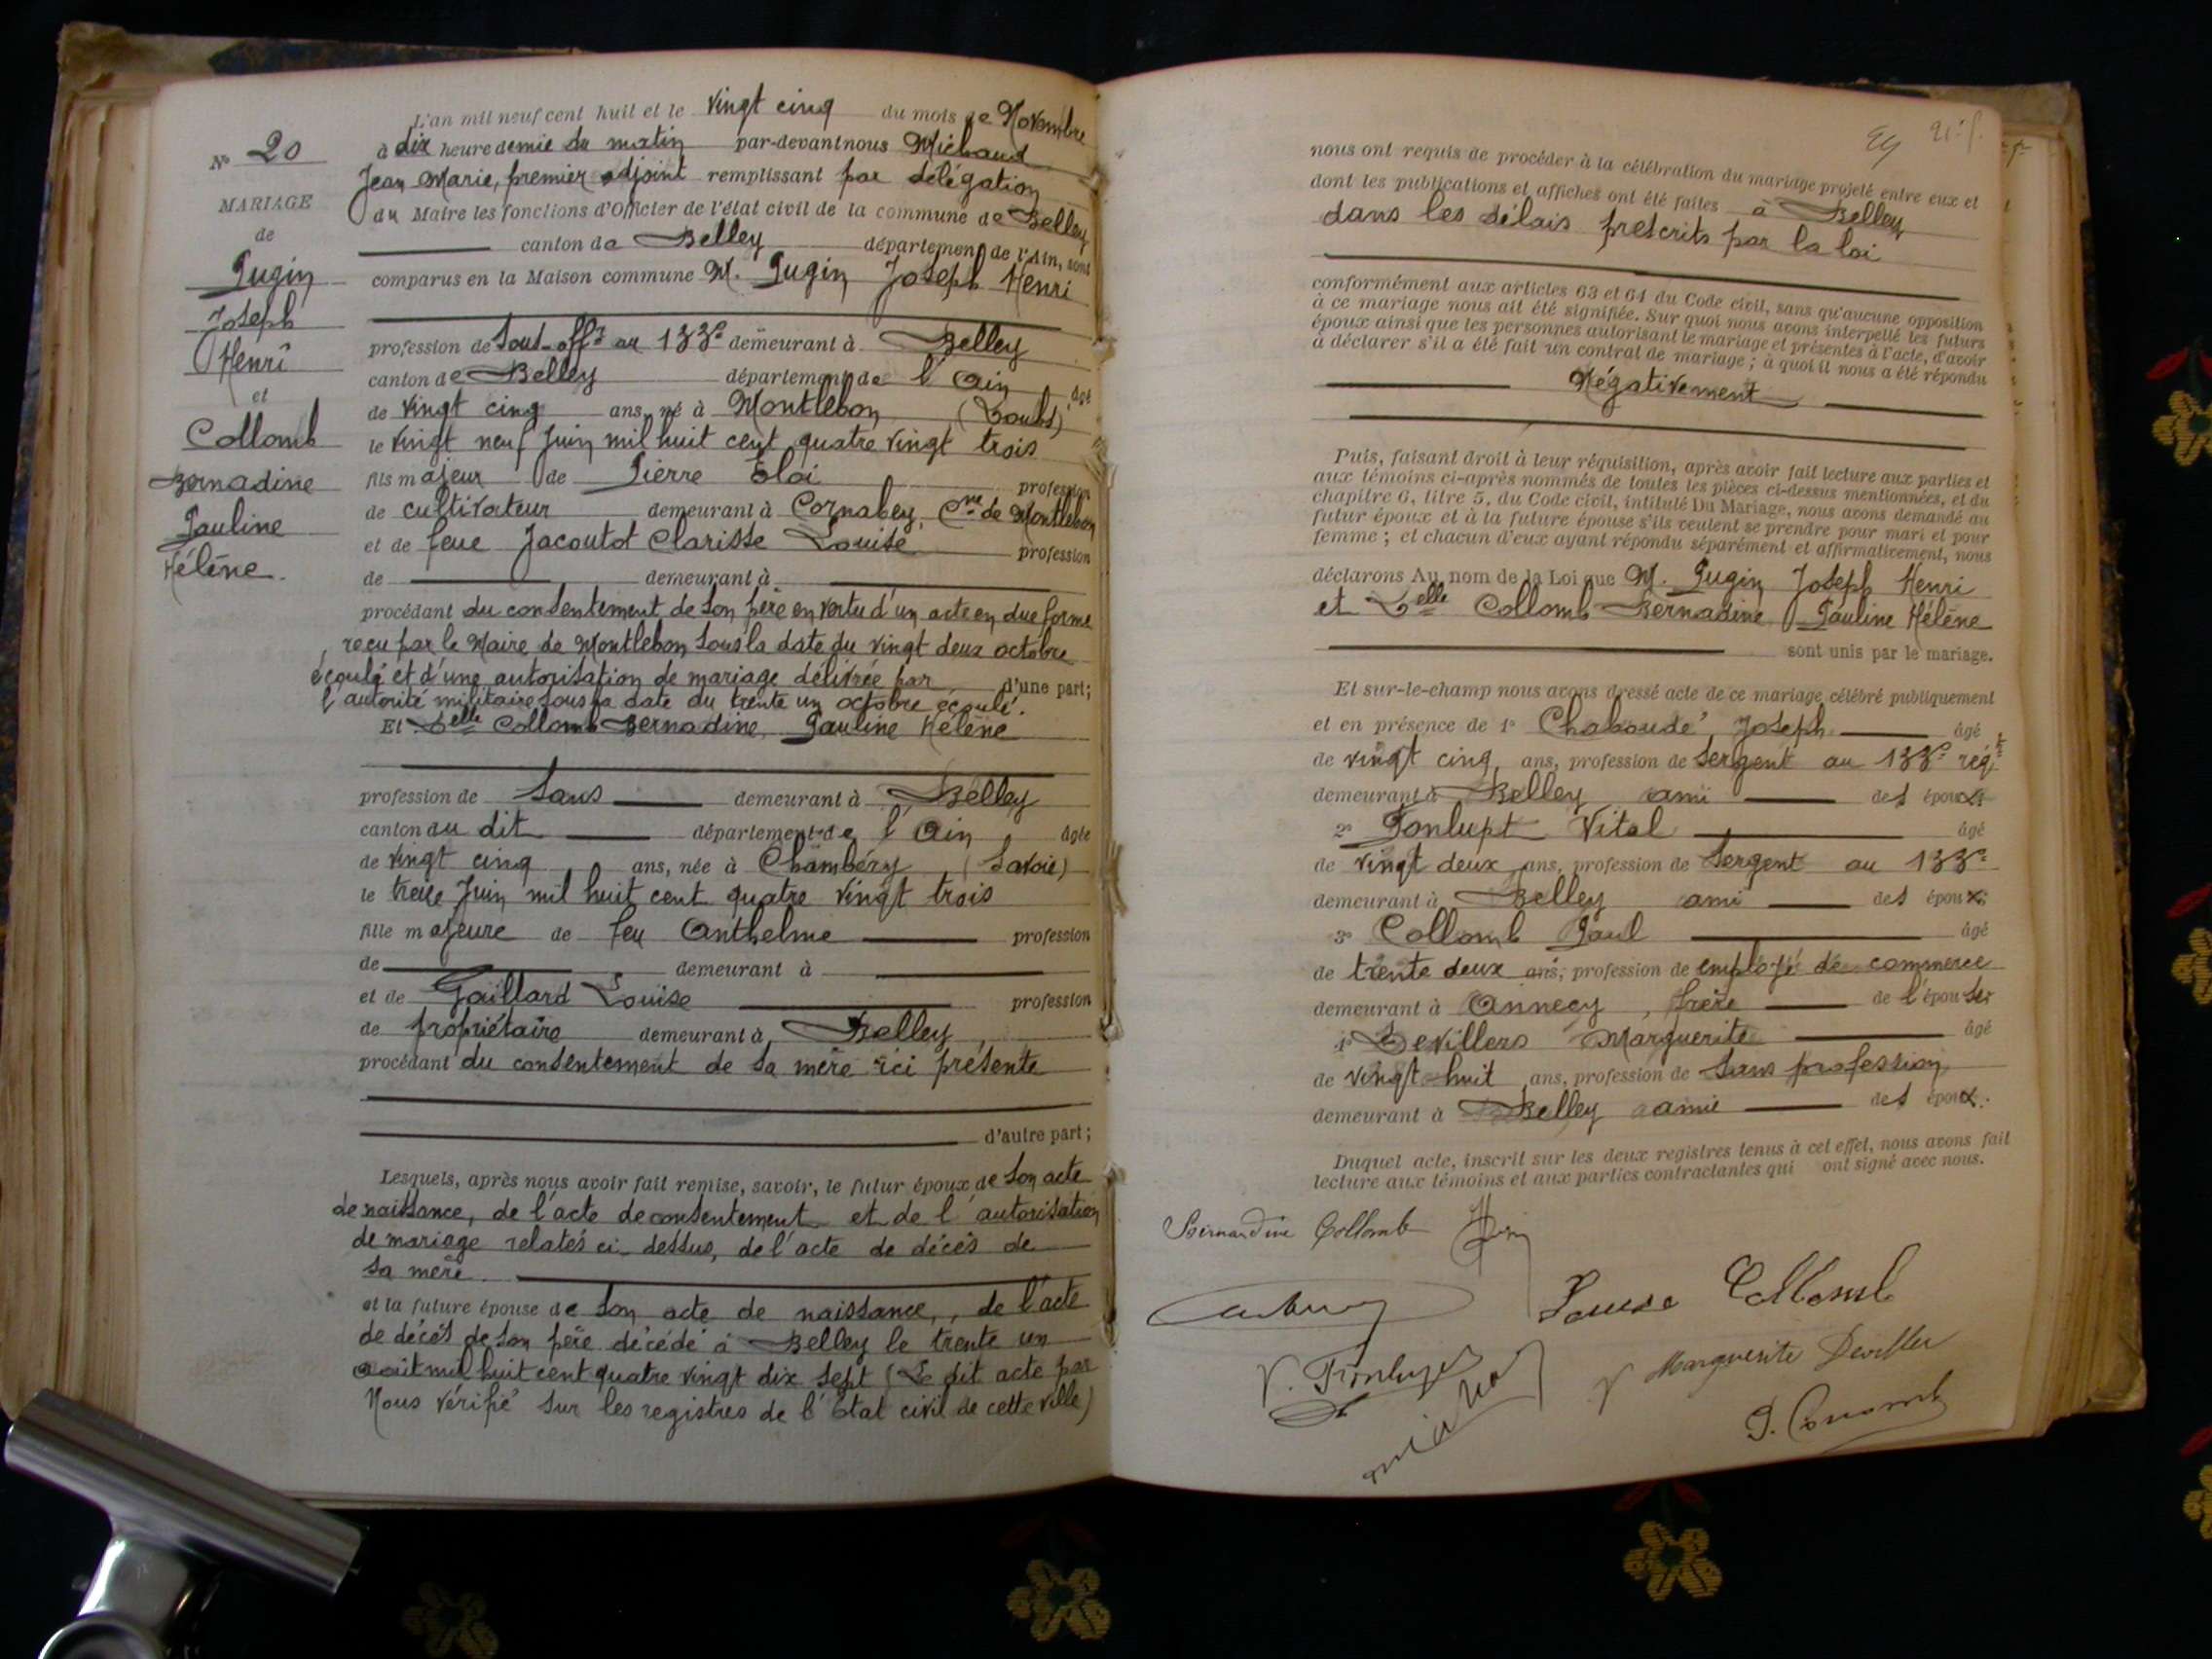 L'an mil neuf cent huit et le vingt cinq du mois de Novembre
à dix heure demie du matin par-devant nous Michaud
Jean Marie, premier adjoint remplissant par délégation
du Maire les fonctions d'Officier de l'état civil de la commune de Belley
canton de Belley département de l'Ain, sont
comparus en la Maison commune M. Pugin Joseph Henri
profession de Sous-offr au 133e demeurant à Belley
canton de Belley département de l'Ain âgé
de vingt cinq ans, né à Montlebon (Doubs)
le vingt neuf Juin mil huit cent quatre vingt trois
fils majeur de Pierre Eloi profession
de cultivateur demeurant à Cornabey, Cne de Montlebon
et de feue Jacoutot Clarisse Louise profession
de demeurant à
procédant du consentement de son père en vertu d'un acte en due forme
reçu par le Maire de Montlebon sous la date du vingt deux octobre
écoulé et d'une autorisation de mariage délivrée par d'une part;
l'autorité militaire sous la date du trente un octobre écoulé.
Et Delle Collomb Bernadine Pauline Hélène
profession de Sans demeurant à Belley
canton du dit département de l'Ain âgée
de vingt cinq ans, née à Chambéry (Savoie)
le treize Juin mil huit cent quatre vingt trois
fille majeure de feu Anthelme profession
de demeurant à
et de Gaillard Louise profession
de propriétaire demeurant à Belley,
procédant du consentement de sa mère ici présente
d'autre part;
Lesquels, après nous avoir fait remise, savoir, le futur époux de son acte
de naissance, de l'acte de consentement et de l'autorisation
de mariage relatés ci-dessus, de l'acte de décès de
sa mère.
et la future épouse de son acte de naissance, de l'acte
de décès de son père décédé à Belley le trente un
août mil huit cent quatre vingt dix sept (Le dit acte par
Nous vérifié sur les registres de l'Etat civil de cette ville)
No 20
MARIAGE
de
Pugin
Joseph
Henri
et
Collomb
Bernadine
Pauline
Hélène.
nous ont requis de procéder à la célébration du mariage projeté entre eux et
dont les publications et affiches ont été faites à Belley
dans les délais prescrits par la loi
conformément aux articles 63 et 64 du Code civil, sans qu'aucune opposition
à ce mariage nous ait été signifiée. Sur quoi nous avons interpellé les futurs
époux ainsi que les personnes autorisant le mariage et présentes à l'acte, d'avoir
à déclarer s'il a été fait un contrat de mariage ; à quoi il nous a été répondu
Négativement
Puis, faisant droit à leur réquisition, après avoir fait lecture aux parties et
aux témoins ci-après nommés de toutes les pièces ci-dessus mentionnées, et du
chapitre 6, titre 5, du Code civil, intitulé Du Mariage, nous avons demandé au
futur époux et à la future épouse s'ils veulent se prendre pour mari et pour
femme ; et chacun d'eux ayant répondu séparément et affirmativement, nous
déclarons Au nom de la Loi que M. Pugin Joseph Henri
et Delle Collomb Bernadine Pauline Hélène
sont unis par le mariage.
Et sur-le-champ nous avons dressé acte de ce mariage célébré publiquement
et en présence de 1o Chaboudé Joseph âgé
de vingt cinq ans, profession de Sergent au 133e régt
demeurant à Belley ami des époux;
2o Ponlupt Vital âgé
de vingt deux ans, profession de Sergent au 133e
demeurant à Belley ami des époux;
3o Collomb Paul âgé
de trente deux ans, profession de employé de commerce
demeurant à Annecy, frère de l'épouse;
4o Devillers Marguerite âgé
de vingt huit ans, profession de Sans profession
demeurant à Belley amie des époux.
Duquel acte, inscrit sur les deux registres tenus à cet effet, nous avons fait
lecture aux témoins et aux parties contractantes qui ont signé avec nous.
Bernardine Collomb
Louise Collomb
Marguerite Deviller
P. Collomb